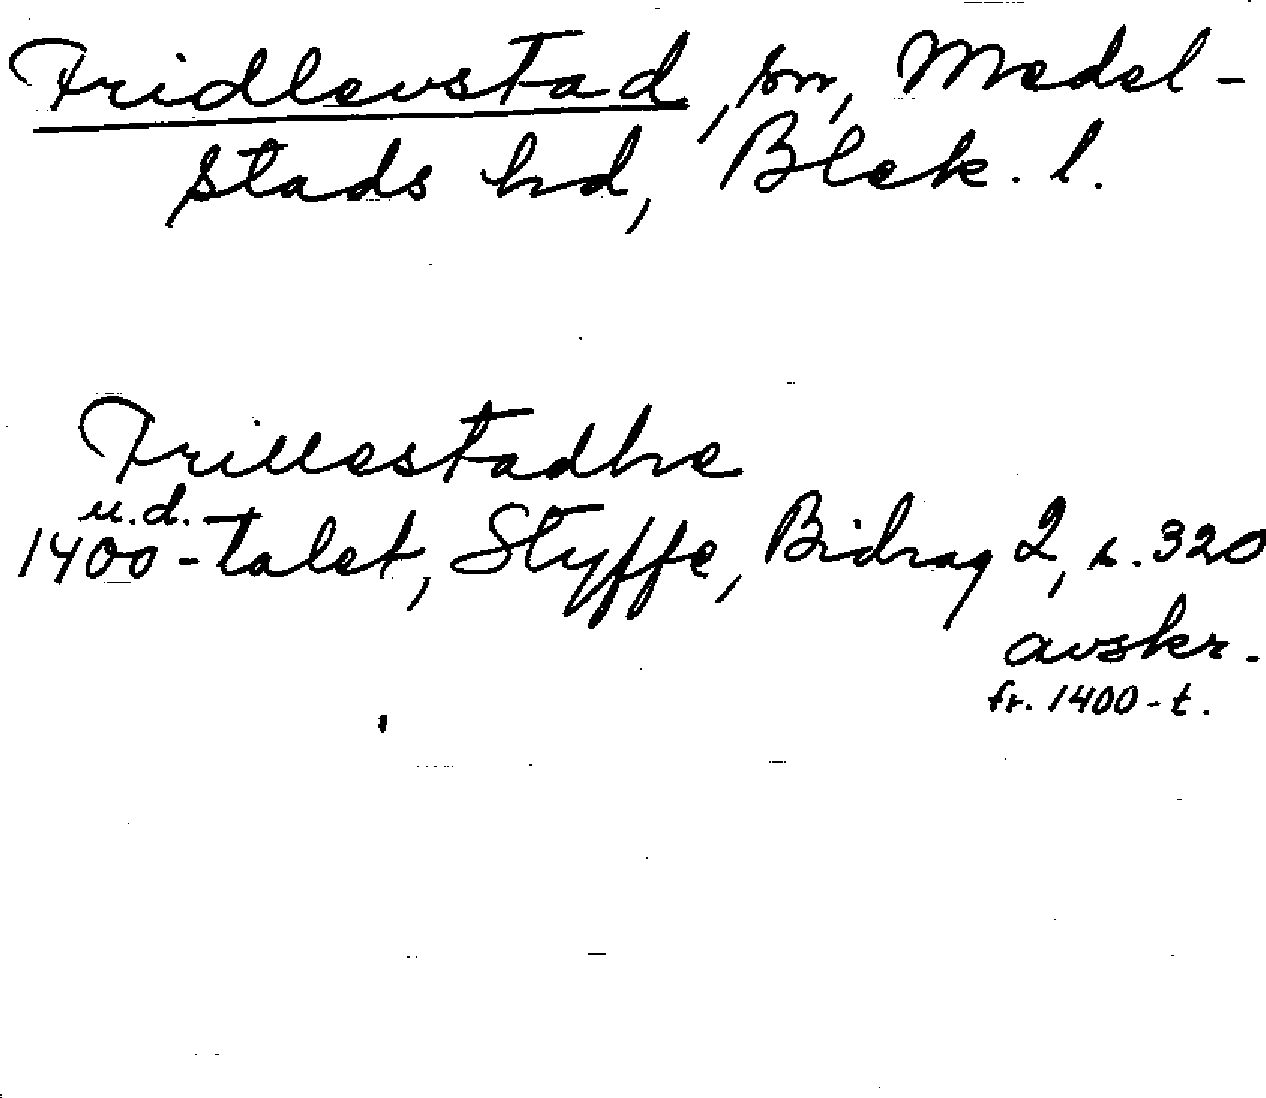 Fridlevstad, sn, Medel-
stads hd, Blek. l.
Frillestadhe
u.d.
1400-talet, Styffe, Bidrag 2, s. 320
avskr.
fr. 1400-t.